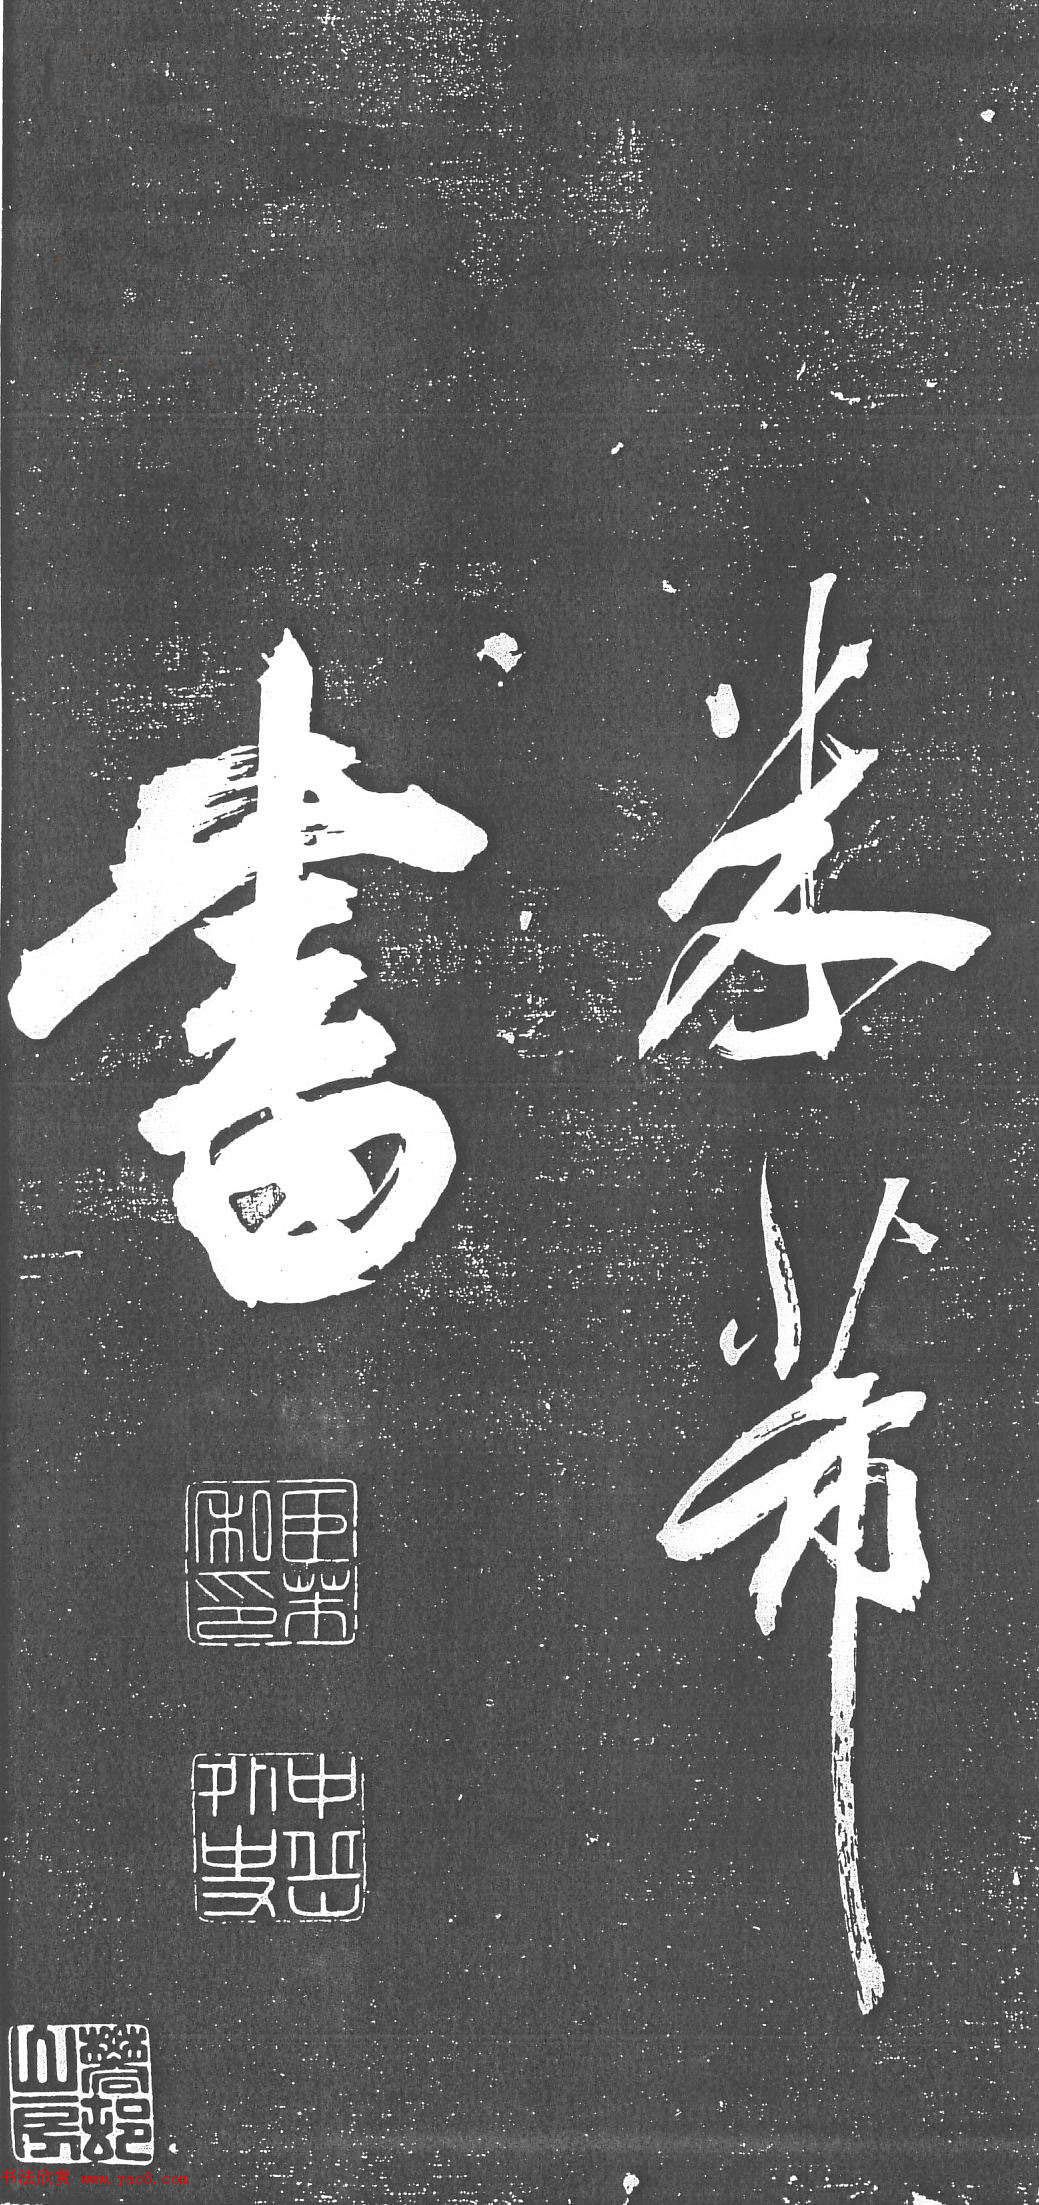 米芾
書
中岳外史
书法欣赏 www.yac8.com